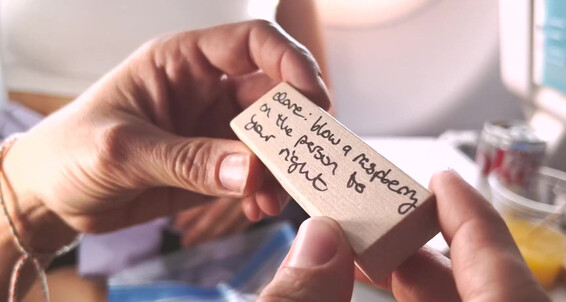 dare: blow a raspberry
on the person to
your right